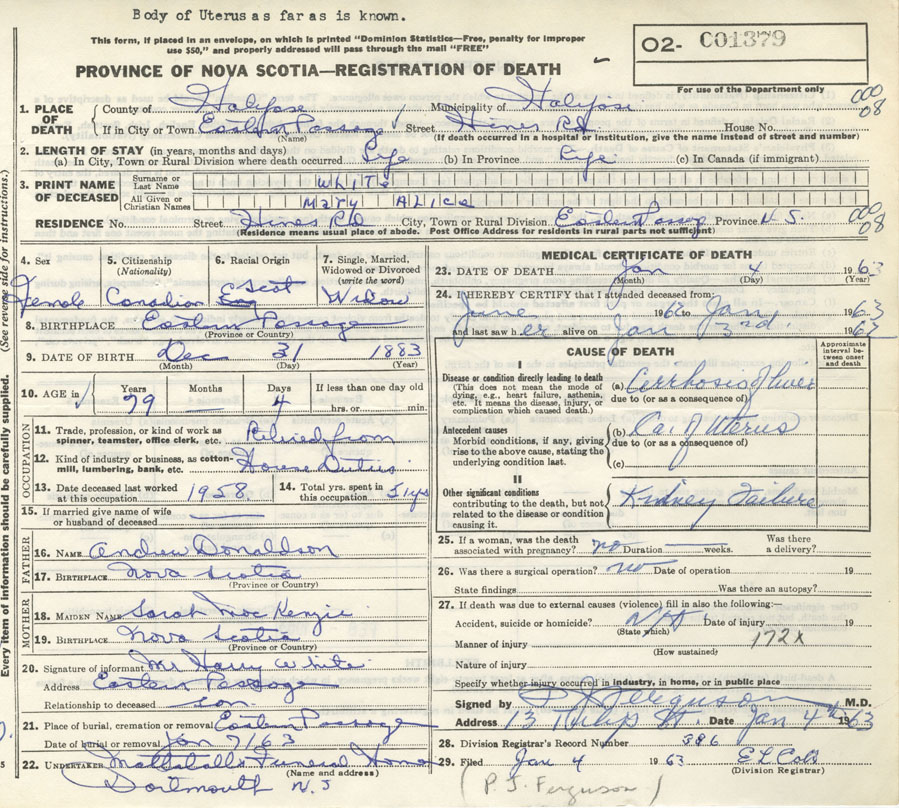 Body of Uterus as far as is known.
This form, if placed in an envelope, on which is printed "Dominion Statistics—Free, penalty for improper
use $50," and properly addressed will pass through the mail "FREE"
O2- C01379
PROVINCE OF NOVA SCOTIA—REGISTRATION OF DEATH
For use of the Department only
000
08
1. PLACE OF DEATH
County of Halifax Municipality of Halifax
If in City or Town Eastern Passage Street Hines Rd House No.
(Name) (If death occurred in a hospital or institution, give the name instead of street and number)
2. LENGTH OF STAY (in years, months and days)
(a) In City, Town or Rural Division where death occurred Life (b) In Province Life (c) In Canada (if immigrant)
3. PRINT NAME OF DECEASED
Surname or Last Name WHITE
All Given or Christian Names MARY ALICE
RESIDENCE No. Street Hines Rd City, Town or Rural Division Eastern Passage Province N.S.
000
08
(Residence means usual place of abode. Post Office Address for residents in rural parts not sufficient)
4. Sex Female
5. Citizenship (Nationality) Canadian
6. Racial Origin Scot
7. Single, Married, Widowed or Divorced (write the word) Widow
8. BIRTHPLACE Eastern Passage
(Province or Country)
9. DATE OF BIRTH Dec 31 1883
(Month) (Day) (Year)
10. AGE in Years 79 Months — Days 4 If less than one day old
hrs. or min.
OCCUPATION
11. Trade, profession, or kind of work as spinner, teamster, office clerk, etc. Retired from
12. Kind of industry or business, as cotton-mill, lumbering, bank, etc. House Duties
13. Date deceased last worked at this occupation 1958
14. Total yrs. spent in this occupation 51 yrs
15. If married give name of wife or husband of deceased —
FATHER
16. NAME Andrew Donaldson
17. BIRTHPLACE Nova Scotia
(Province or Country)
MOTHER
18. MAIDEN NAME Sarah MacKenzie
19. BIRTHPLACE Nova Scotia
(Province or Country)
20. Signature of informant Mr Harry White
Address Eastern Passage
Relationship to deceased son
21. Place of burial, cremation or removal Eastern Passage
Date of burial or removal Jan 7/63
22. UNDERTAKER Mattatalls Funeral Home
(Name and address)
Dartmouth N.S
MEDICAL CERTIFICATE OF DEATH
23. DATE OF DEATH Jan 4 1963
(Month) (Day) (Year)
24. I HEREBY CERTIFY that I attended deceased from:
June 1962 to Jan 1963
and last saw her alive on Jan 3rd. 1963
CAUSE OF DEATH
Approximate interval between onset and death
I
Disease or condition directly leading to death
(This does not mean the mode of dying, e.g., heart failure, asthenia, etc. It means the disease, injury, or complication which caused death.)
(a) Cirrhosis of liver
due to (or as a consequence of)
Antecedent causes
Morbid conditions, if any, giving rise to the above cause, stating the underlying condition last.
(b) Ca. of Uterus
due to (or as a consequence of)
(c)
II
Other significant conditions
contributing to the death, but not related to the disease or condition causing it.
Kidney Failure
25. If a woman, was the death associated with pregnancy? no Duration — weeks. Was there a delivery?
26. Was there a surgical operation? no Date of operation 19
State findings Was there an autopsy?
27. If death was due to external causes (violence) fill in also the following:—
Accident, suicide or homicide? Date of injury 19
(State which)
Manner of injury 172x
(How sustained)
Nature of injury
Specify whether injury occurred in industry, in home, or in public place
Signed by P J Ferguson M.D.
Address 13 Tulip St. Date Jan 4th 1963
28. Division Registrar's Record Number 386
29. Filed Jan 4 1963
(Division Registrar)
(P. J. Ferguson)
(See reverse side for instructions.)
Every item of information should be carefully supplied.